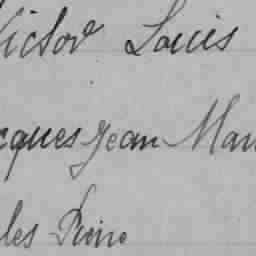 Victor Louis
cques Jean Mar
les Pierre